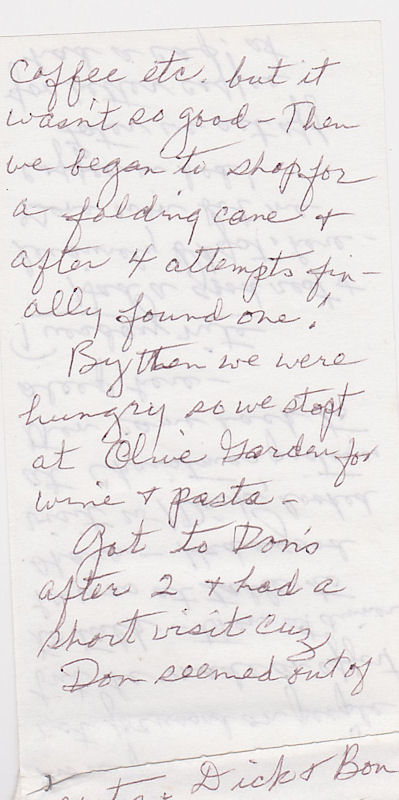 coffee etc. but it
wasn't so good - Then
we began to shop for
a folding cane +
after 4 attempts fin-
ally found one!
By then we were
hungry so we stopt
at Olive Garden for
wine + pasta -
Got to Don's
after 2 + had a
short visit cuz
Don seemed out of
+ Dick + Bon